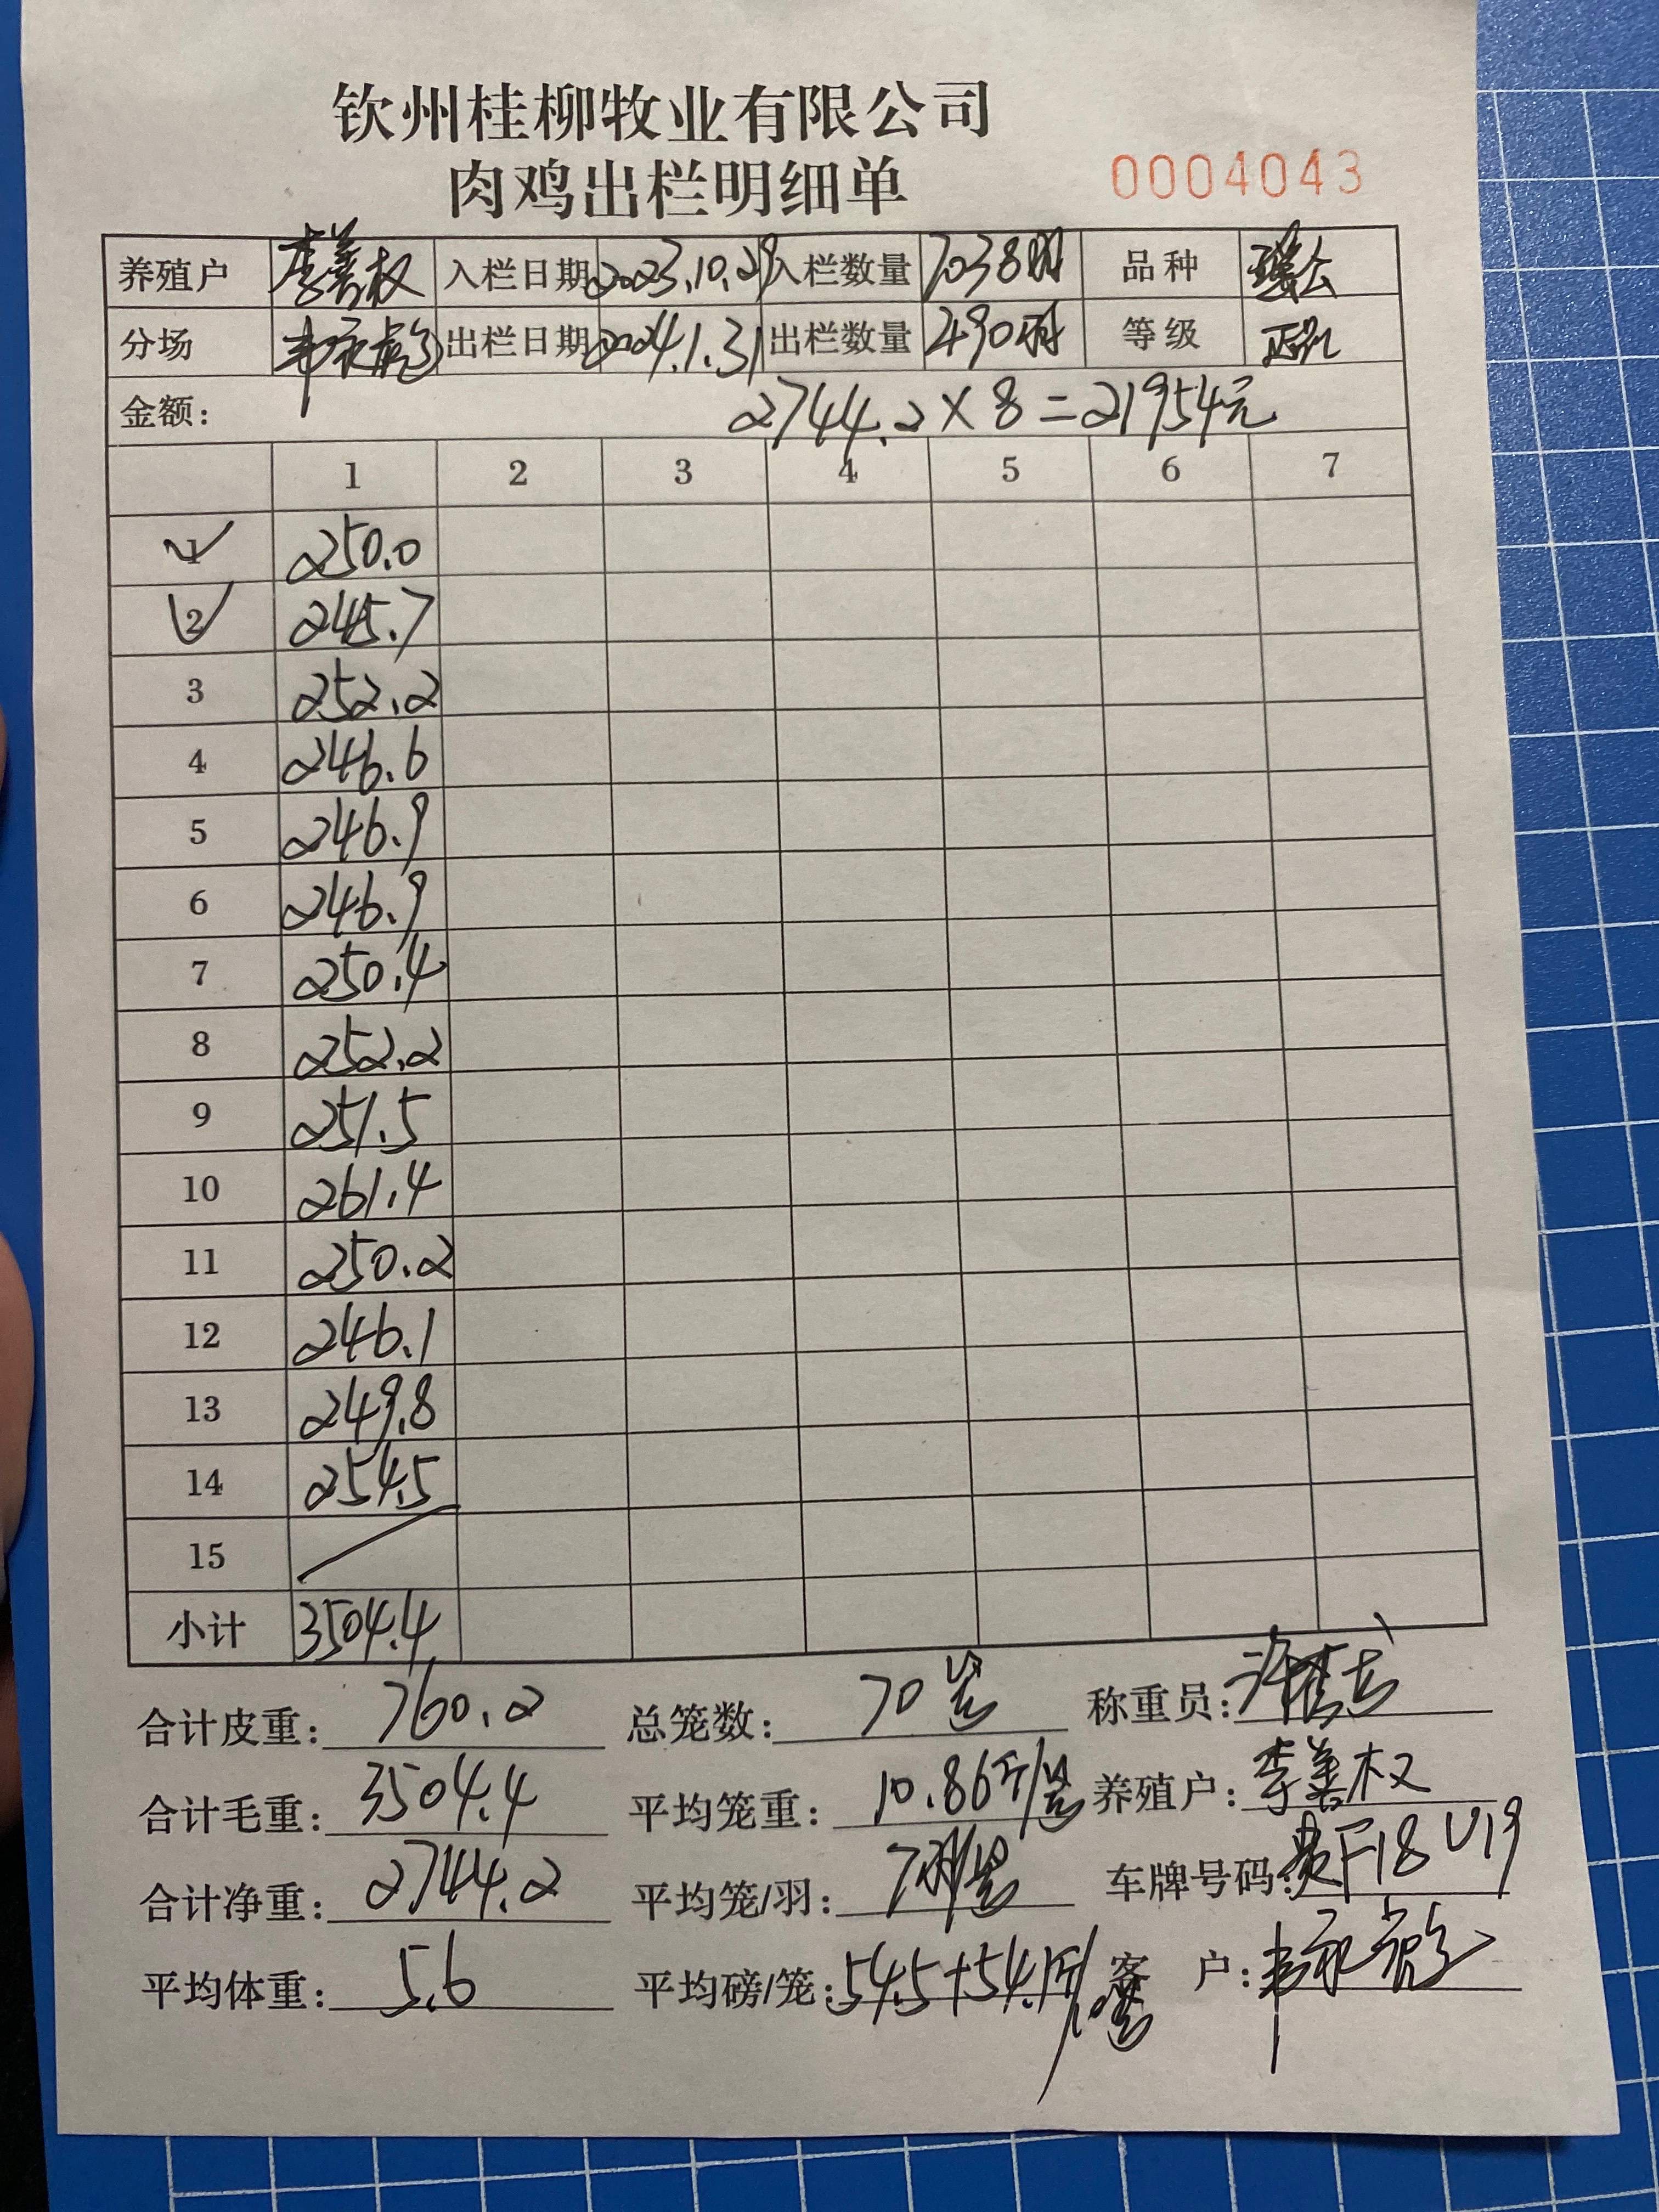 钦州桂柳牧业有限公司
肉鸡出栏明细单 0004043
养殖户 李善权 入栏日期 2023.10.29 入栏数量 7038羽 品种 瑶公
分场 出栏日期 2024.1.31 出栏数量 490羽 等级 正品
金额: 2744.2×8=21954元
1 2 3 4 5 6 7
1 250.0
2 245.7
3 252.2
4 246.6
5 246.9
6 246.9
7 250.4
8 252.2
9 251.5
10 261.4
11 250.2
12 246.1
13 249.8
14 254.5
15
小计 3504.4
合计皮重: 760.2 总笼数: 70笼 称重员:
合计毛重: 3504.4 平均笼重: 10.86斤/笼 养殖户: 李善权
合计净重: 2744.2 平均笼/羽: 7羽/笼 车牌号码: 贵F18U19
平均体重: 5.6 平均磅/笼: 54.5+54.1斤/ 客 户: